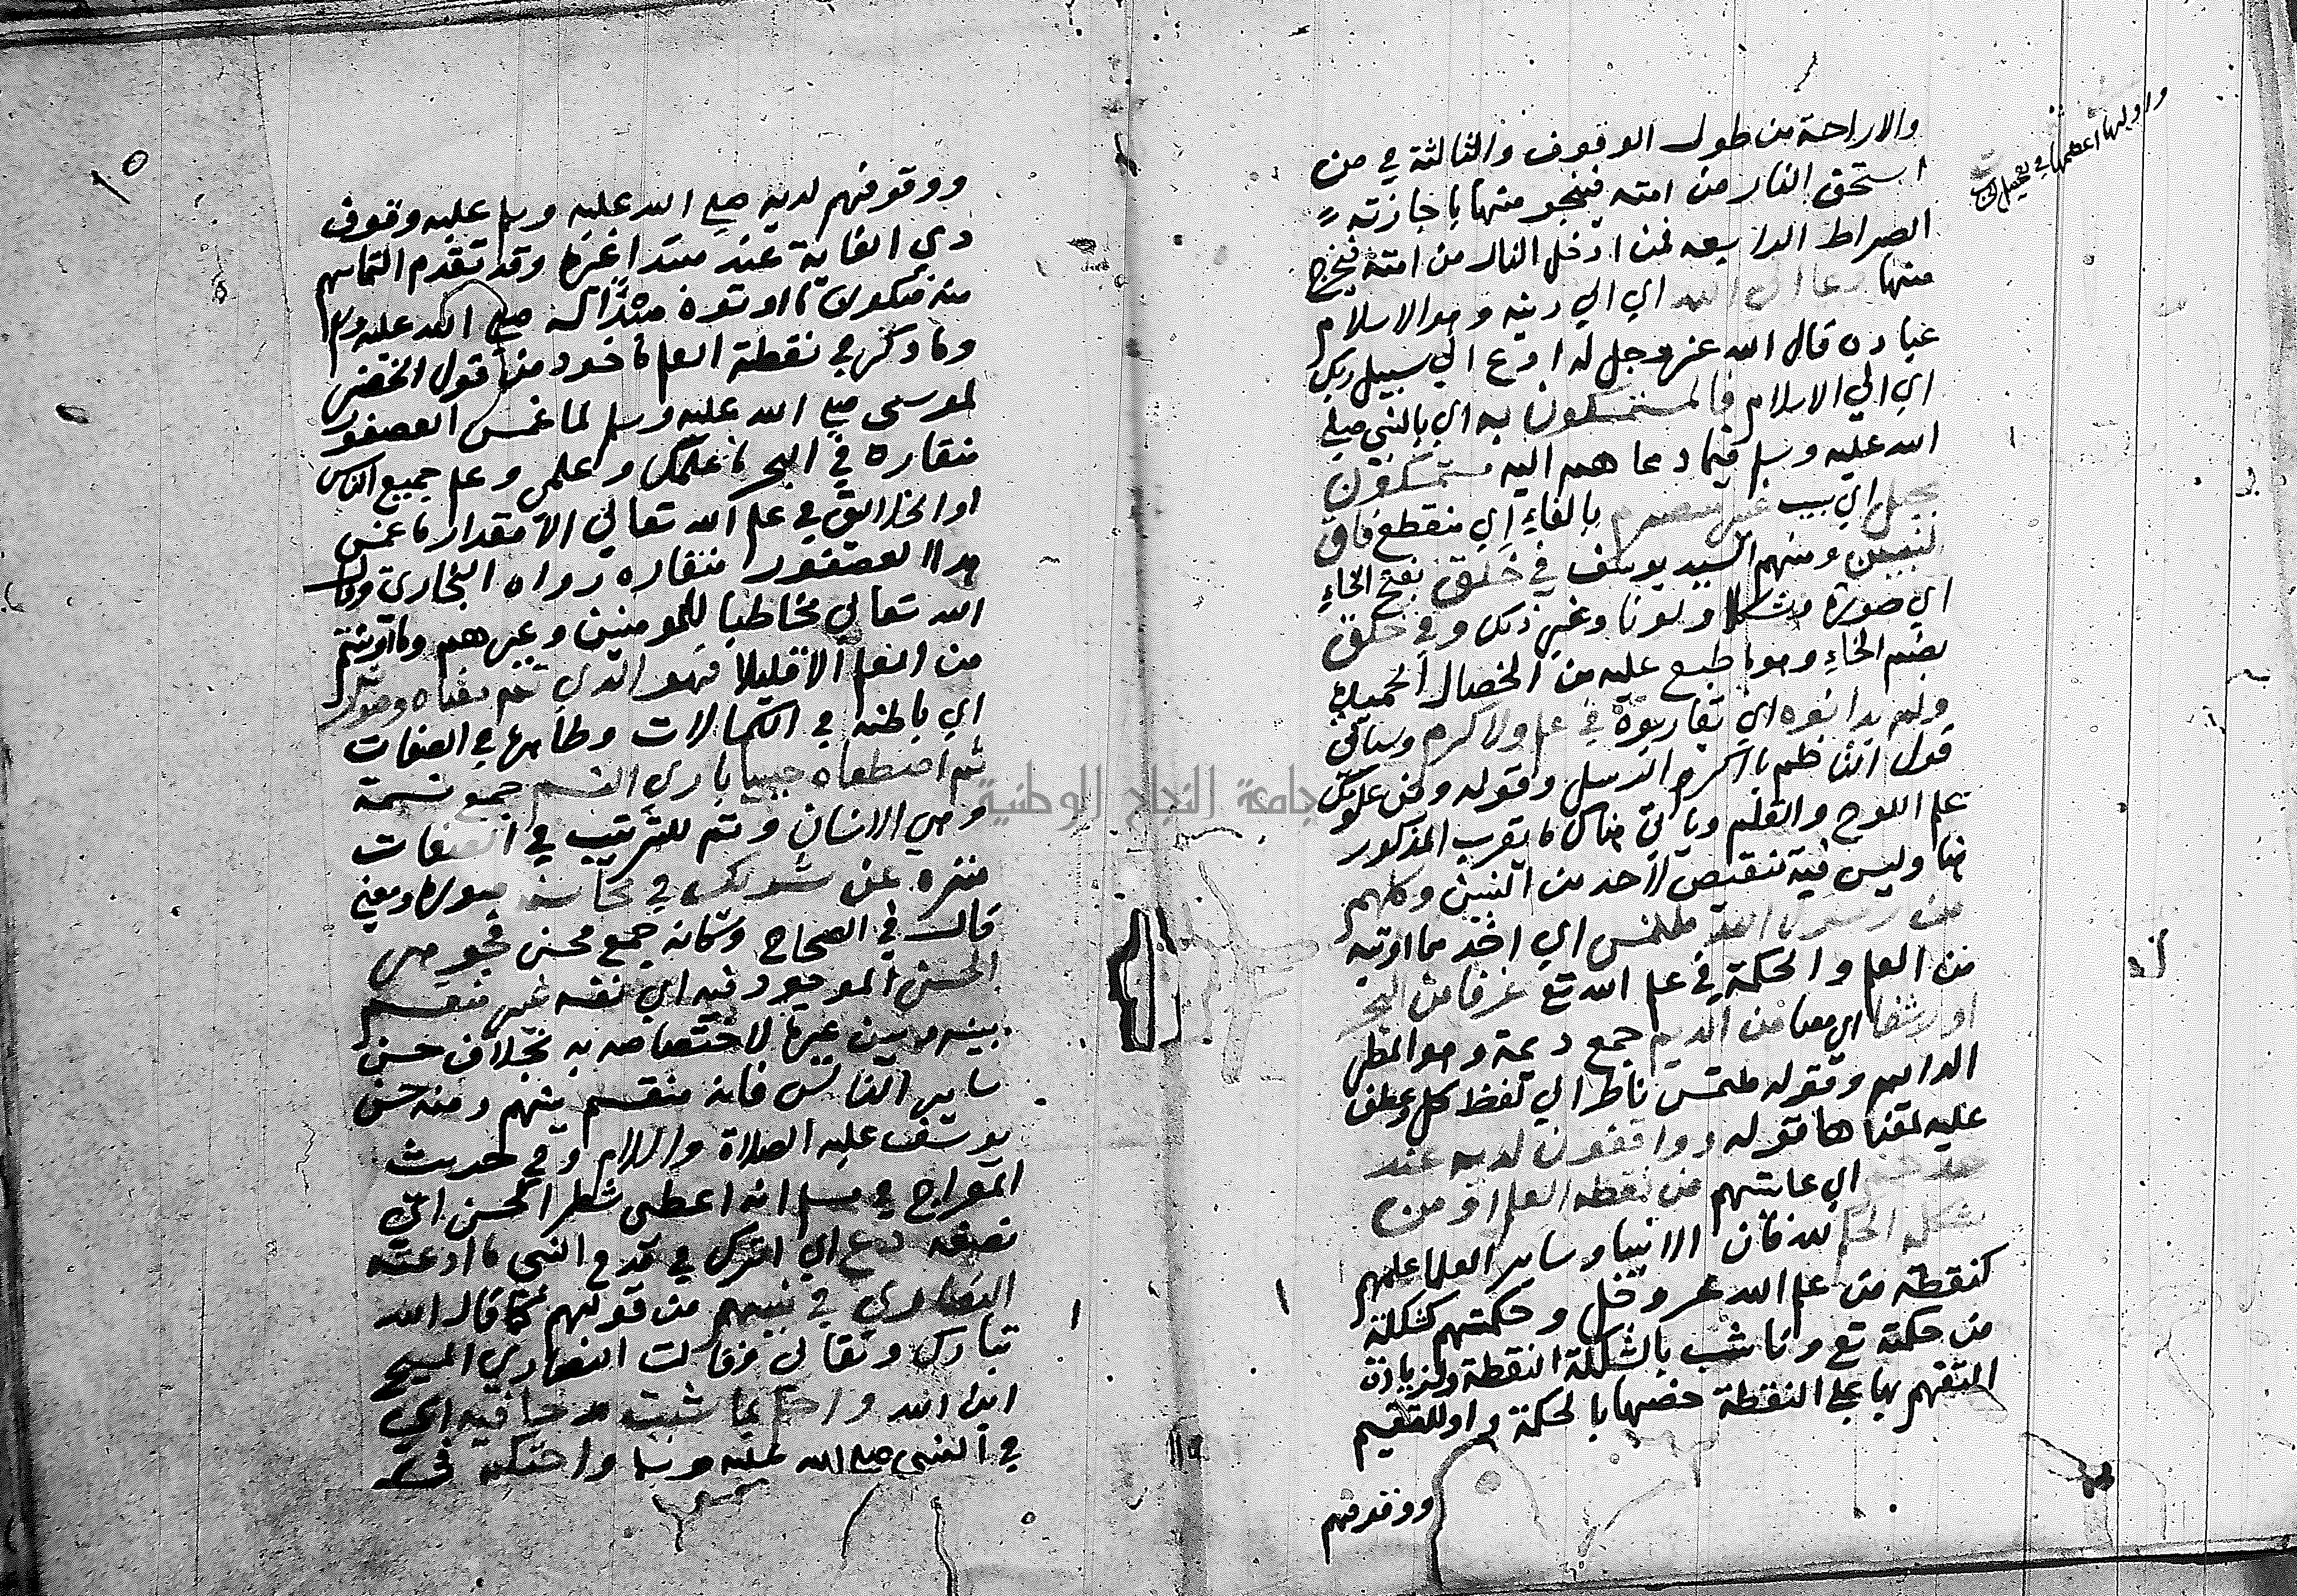 واوليها اعظمها في تعجيل
والاراحة من طول الوقوف والثالثة في من
استحق النار من امته فينجو منها باجازته
الصراط الرابعه لمن ادخل النار من امته فيخرج
منها دعا الى الله اي الي دينه وهو الاسلام
عباده قال الله عز وجل له ادع الي سبيل ربك
اي الي الاسلام فالمستمسكون به اي بالنبي صلي
الله عليه وسلم فيما دعاهم اليه مستمسكون
بحبل اي سبب غير منفصم بالفاءِ اي منقطع فاق
النبيين ومنهم السيد يوسف في خَلق بفتح الخاءِ
اي صورة وشكلا ولونا وغير ذلك وفي خلق
بضم الخاءِ وهو ما طبع عليه من الخصال الحميدة
ولم يدانوه اي يقاربوه في علم ولا كرم وسياتي
قول الناظم يا اكرم الرسل وقوله ومن علومك
علم اللوح والقلم وياتي هناك ما يقرب المذكور
هنا وليس فيه تنقيص لاحد من النبين وكلهم
من رسول الله ملتمس اي اخذ مما اوتيه
من العلم والحكمة في علم الله تع غرفا من البحر
او رشفا اي مصا من الديم جمع ديمة وهو المطر
الدايم وقوله ملتمس ناظر الي لفظ كل وعطف
عليه بمعناها قوله وواقفون لديه عند
حدهم اي غايتهم من نقطة العلم او من
شكلة الحكم لله فان الانبيا وساير العلما علمهم
كنقطة من علم الله عز وجل وحكمتهم كشكلة
من حكمة تع وناسب بالشكلة النقطة ولزيادة
التفهم بها علي النقطة خصها بالحكمة واو للتقسيم
ووقوفهم
١٥
ووقوفهم لديه صلي الله عليه وسلم عليه وقوف
ذي الغاية عند مبتدا غيره وقد تقدم التماسهم
منه فيكون ما اوتوه مبتداله صلي الله عليه وسلم
وما ذكره في نقطة العلم ماخوذ من قول الخضر
لموسى صلي الله عليه وسلم لما غمس العصفور
منقاره في البحر ما علمك وعلمي وعلم جميع الناس
او الخلائق في علم الله تعالي الا مقدار ما غمس
هذا العصفور منقاره رواه البخاري وقال
الله تعالي مخاطبا للمومنين وغيرهم وما اوتيتم
من العلم الا قليلا فهو الذي تم معناه وصورته
اي باطنه في الكمالات وظاهره في الصفات
ثم اصطفاه حبيبا باري النسم جمع نسمة
وهي الانسان وثم للترتيب في الصفات
منزه عن شريك في محاسنه صورة ومعني
قال في الصحاح وكانه جمع محسن فجوهر
الحسن الموجود فيه اي نفسه غير منقسم
بينه وبين غيره لاختصاصه به بخلاف حسن
ساير الناس فانه منقسم بينهم ومنه حسن
يوسف عليه الصلاة والسلام وفي حديث
المعراج في مسلم انه اعطى شطر الحسن اي
نصفه دع اي اترك في مدح النبي ما ادعته
النصاري في نبيهم من قولهم كما قال الله
تبارك وتعالى وقالت النصاري المسيح
ابن الله واحكم بما شيت مدحا فيه اي
في النبي صلي الله عليه وسلم واحتكم